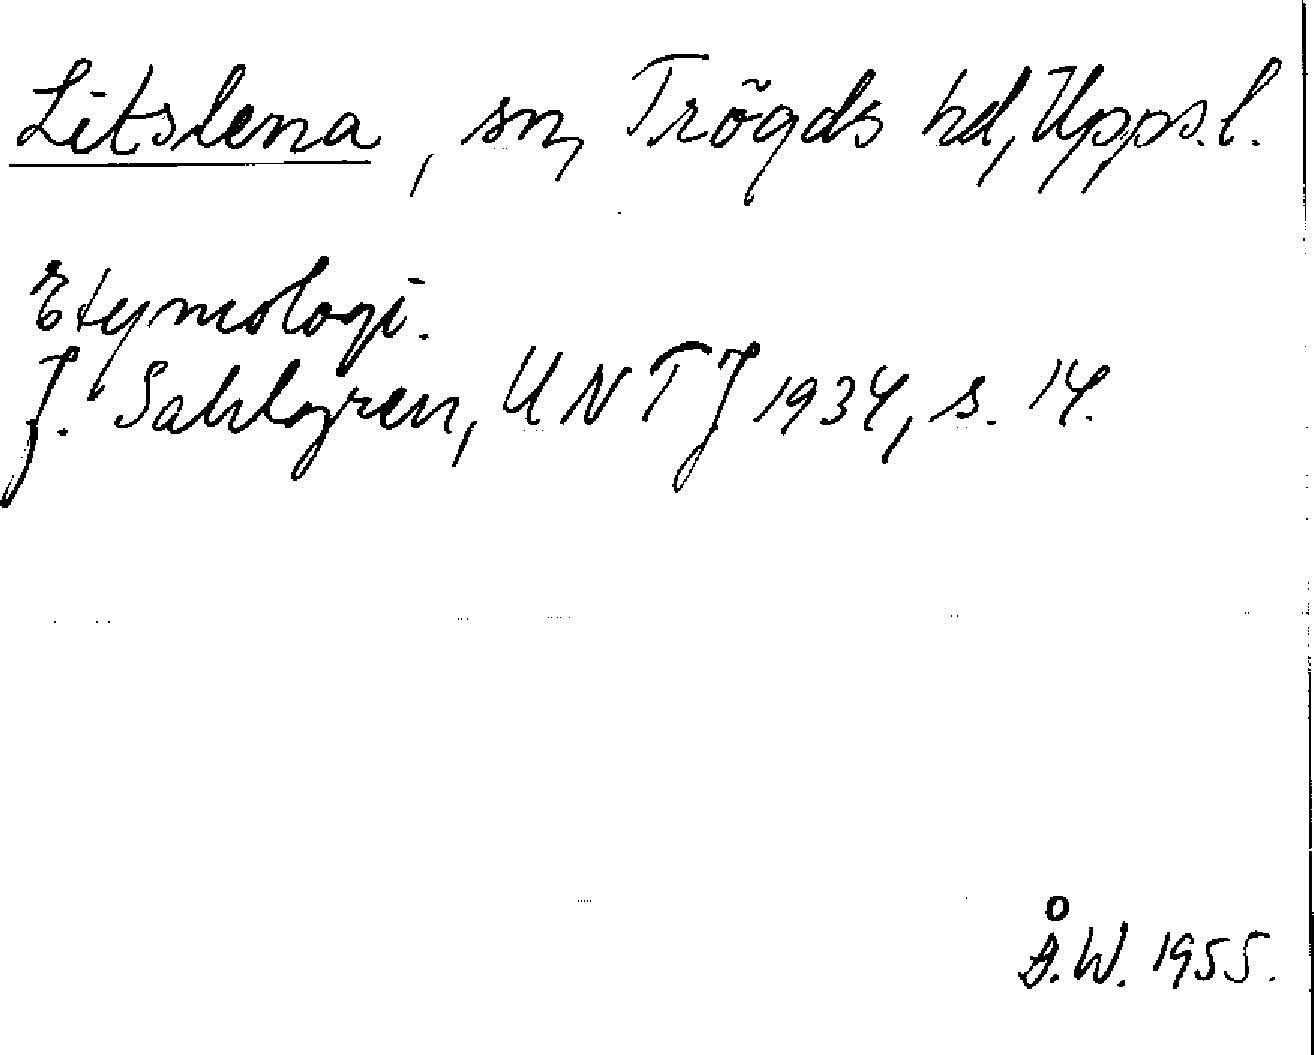 Litslena, sn, Trögds hd, Upps.l.
Etymologi.
J. Sahlgren, UNTJ 1934, s. 14.
Å.W. 1955.